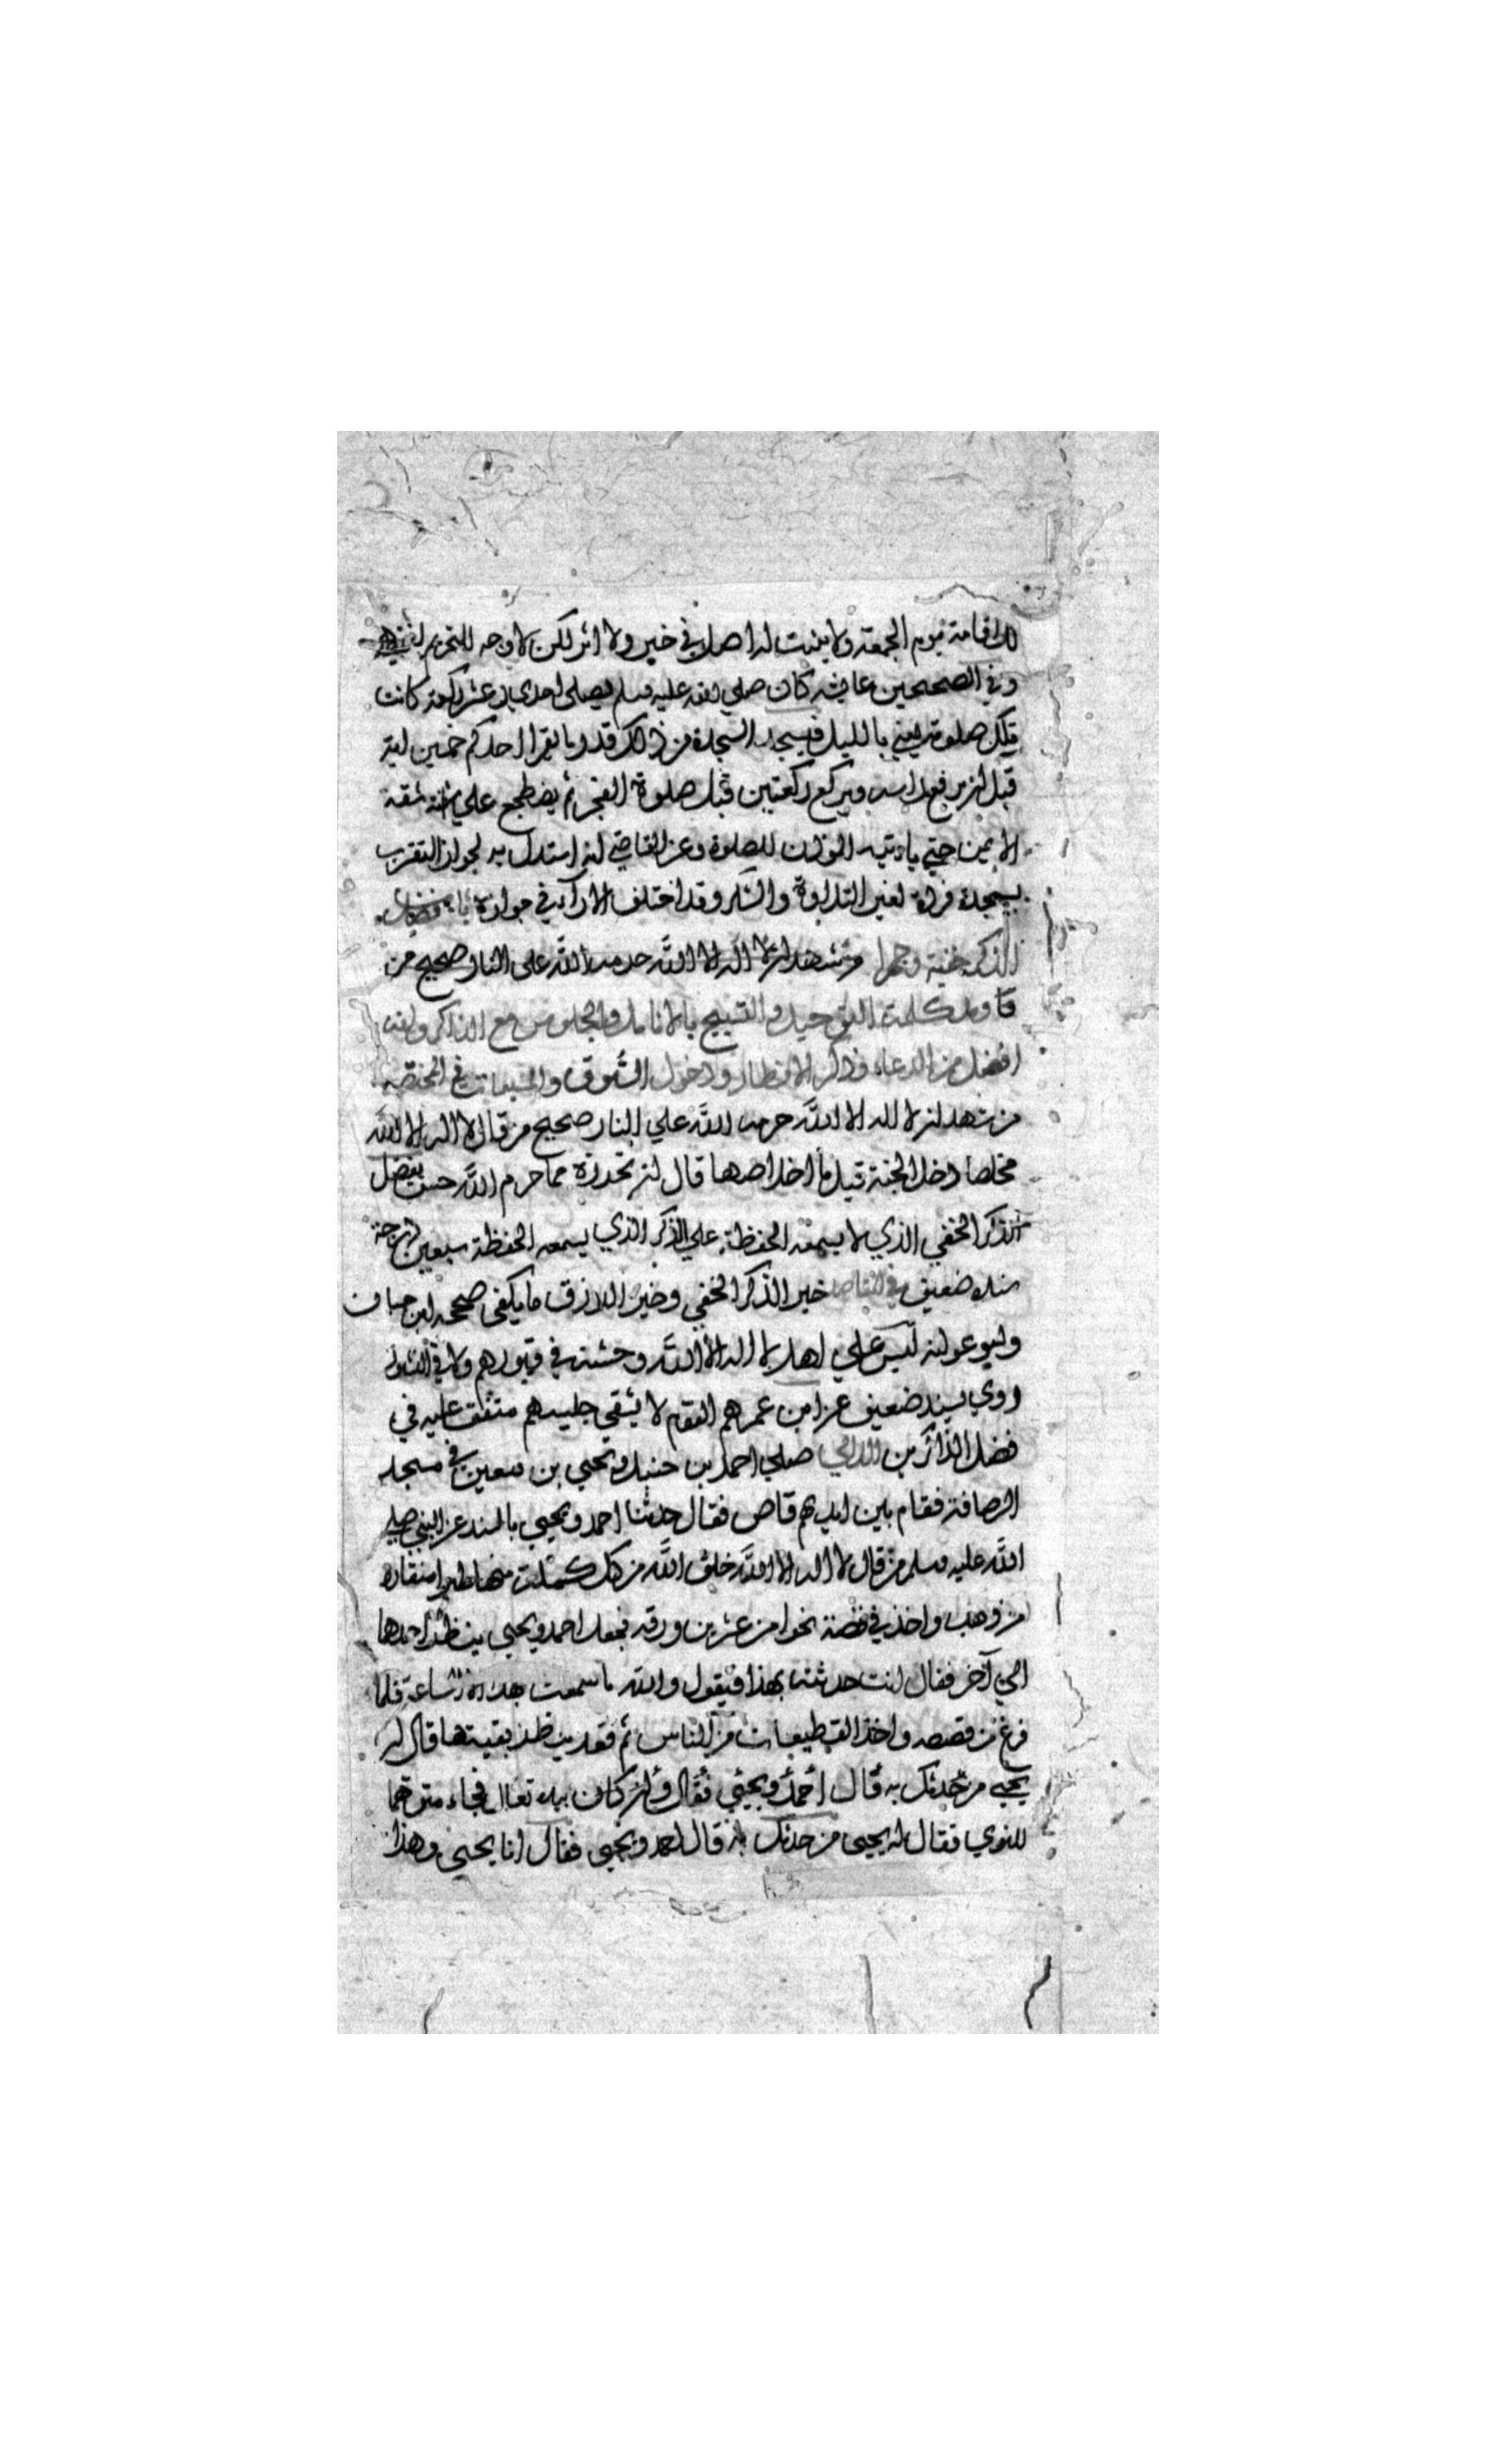 الاقامة يوم الجمعة ولا يثبت له اصل في خبر ولا اثر لكن لا وجه للتحريم
وفي الصحيحين عايشه كان صلي الله عليه وسلم يصلي احدي عشر ركعة كانت
تلك صلوته يعني بالليل فيسجد السجدة من ذلك قدر ما يقرا احدكم خمسين اية
قبل ان يرفع راسه ويركع ركعتين قبل صلوة الفجر ثم يضطجع علي شقه
الايمن حتي ياتيه الموذن للصلوة وعن القاضي انه استدل به لجواز التقرب
بسجدة فردة لغير التلاوة والشكر وقد اختلف الاراء في جوازه باب فضل
الذكر خفية وجهرا من شهد ان لا اله الا الله حرمه الله علي النار صحيح من
كلمة التوحيد والتسبيح بالانامل والجلوس مع الذاكر وانه
افضل من الدعاء وذكر الافطار ودخول السوق والمسبعات في المختصر
من شهد ان لا اله الا الله حرمه الله علي النار صحيح من قال لا اله الا الله
مخلصا دخل الجنة قيل ما اخلاصها قال ان تحجزه مما حرم الله حسن يفضل
الذكر الخفي الذي لا يسمعه الحفظة علي الذكر الذي يسمعه الحفظة سبعين درجة
سنده ضعيف في المقاصد خير الذكر الخفي وخير الرزق ما يكفي صححه ابن حبان
وابو عوانه ليس علي اهل لا اله الا الله وحشة في قبورهم ولا في النشور
روي بسند ضعيف عن ابن عمر هم القوم لا يشقي جليسهم متفق عليه في
فضل الذاكرين اللالي صلي احمد بن حنبل ويحيي بن معين في مسجد
الرصافة فقام بين ايديهم قاص فقال حدثنا احمد ويحيي بالسند عن النبي صلي
الله عليه وسلم من قال لا اله الا الله خلق الله من كل كلمة منها طيرا منقاره
من ذهب واخذ في قصة نحوا من عشرين ورقه فجعل احمد ويحيي ينظر احدهما
الي آخر فقال انت حدثته بهذا فيقول والله ما سمعت هذه الا الساعة فلما
فرغ من قصصه واخذ القطيعات من الناس ثم قعد ينتظر بقيتها قال له
يحيي من حدثك به قال احمد ويحيي فقال وان كان بيده تعال فجاء متوهما
للنوي فقال له يحيي من حدثك به قال احمد ويحيي فقال انا يحيي وهذا